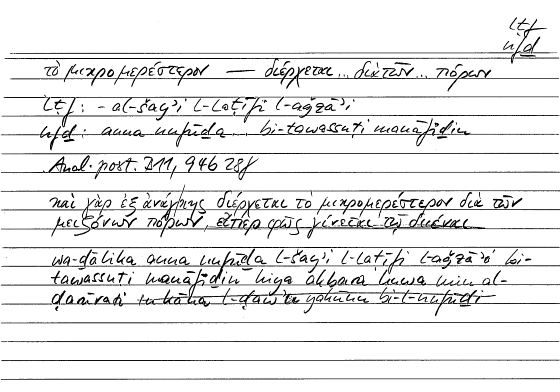 lṭf
nfḏ
τὸ μικρομερέστερον — διέρχεται... διὰ τῶν... πόρων
lṭf: -al-šayʾi l-laṭīfi l-aǧzāʾi
nfḏ: anna nufūḏa... bi-tawassuṭi manāfiḏin
Anal. post. B11, 94b 28f
καὶ γὰρ ἐξ ἀνάγκης διέρχεται τὸ μικρομερέστερον διὰ τῶν
μειζόνων πόρων, εἴπερ φῶς γίνεται τῷ διιέναι
wa-ḏālika anna nufūḏa l-šayʾi l-laṭīfi l-aǧzāʾi bi-
tawassuṭi manāfiḏin hiya akbaru huwa min al-
ḍarūrati in kāna l-ḍawʾu yakūnu bi-l-nufūḏi